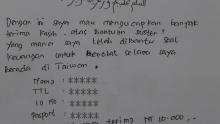 السلام عليكم ورحمة الله وبركاته
Dengan ini saya mau mengucapkan banyak
terima kasih atas bantuan
yang mana saya telah dibantu soal
keuangan untuk berobat selama saya
berada di Taiwan.
Nama : *****
TTL : *****
ID No : *****
Pasport : *****
terima NT 10.000.-